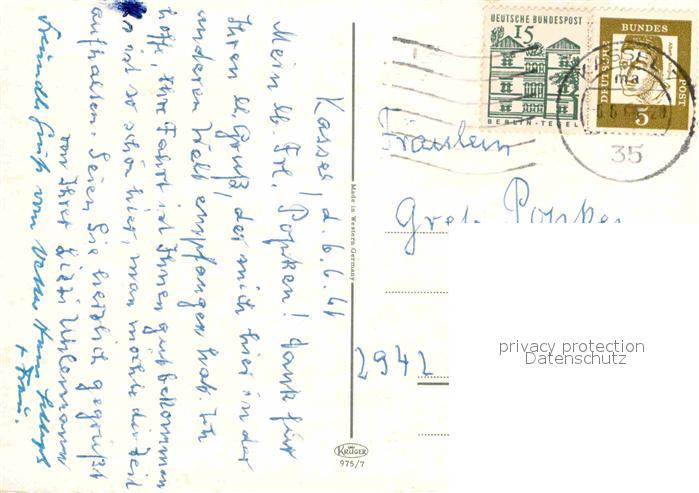 Kassel, d. 6.6.
Mein lb. Frl. Popken! Dank für
Ihren lb. Gruß, der mich hier in der
anderen Welt empfangen hat. Ich
hoffe, Ihre Fahrt ist Ihnen gut bekommen
so schön hier, man möchte die Zeit
aufhalten. Seien Sie herzlich gegrüßt
von Ihrer
Freundl. Gruß von
+ Frau.
Made in Western Germany
KRÜGER
975/7
DEUTSCHE BUNDESPOST
15
BERLIN-TEGEL
DEUTSCHE BUNDESPOST
5
KASSEL
35
Fräulein
Gret. Popken
2942
privacy protection
Datenschutz